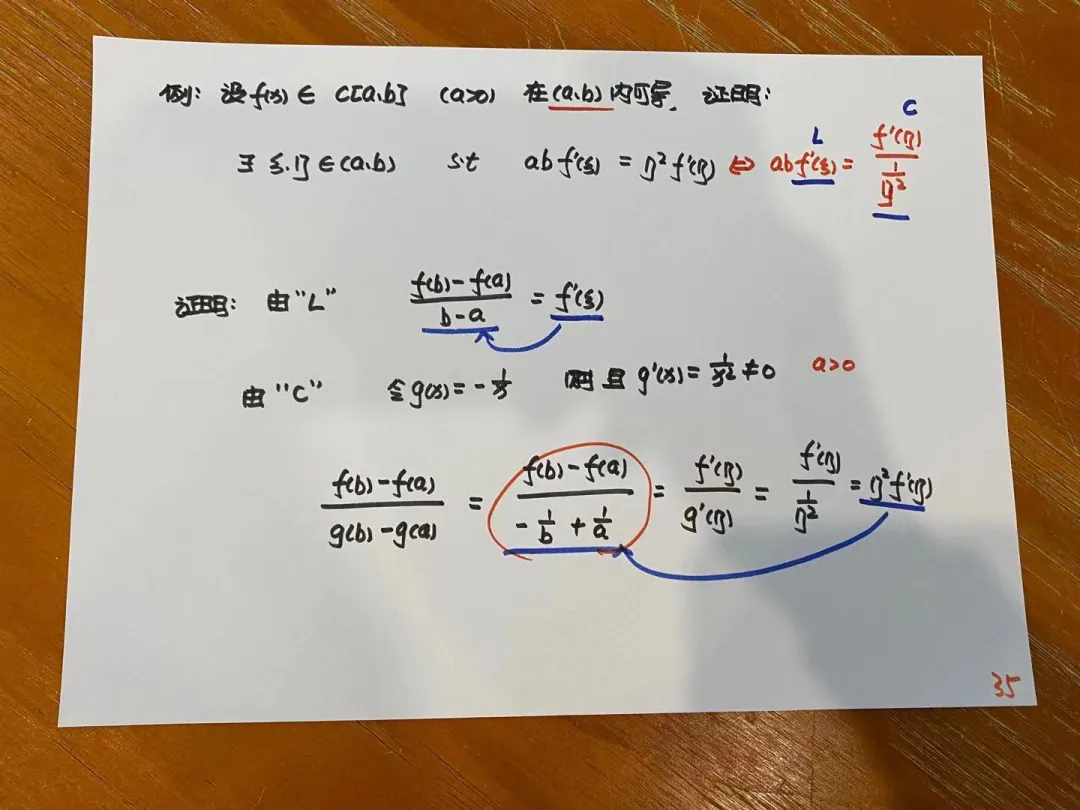 例: 设f(x)∈ C[a,b] (a>0) 在(a,b)内可导, 证明:
∃ ξ,η∈(a,b) st abf'(ξ) = η²f'(η) ⇔ abf'(ξ) = f'(η)/(1/η²)
L C
证明: 由"L" (f(b)-f(a))/(b-a) = f'(ξ)
由"C" 令g(x)=-1/x 且g'(x)=1/x²≠0 a>0
(f(b)-f(a))/(g(b)-g(a)) = (f(b)-f(a))/(-1/b+1/a) = f'(η)/g'(η) = f'(η)/(1/η²) = η²f'(η)
35